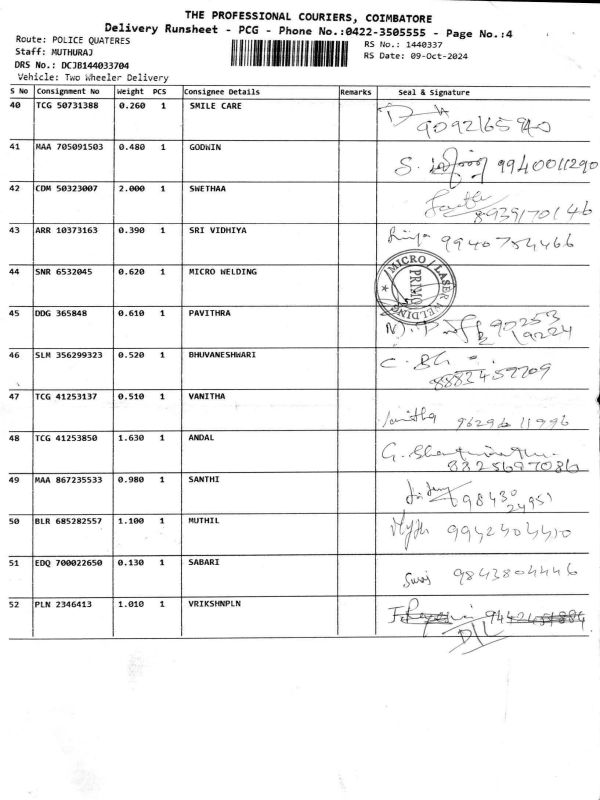 THE PROFESSIONAL COURIERS, COIMBATORE
Delivery Runsheet - PCG - Phone No.:0422-3505555 - Page No.:4
Route: POLICE QUATERES
RS No.: 1440337
Staff: MUTHURAJ
RS Date: 09-Oct-2024
DRS No.: DCJB144033704
Vehicle: Two Wheeler Delivery
S No Consignment No Weight PCS Consignee Details Remarks Seal & Signature
40 TCG 50731388 0.260 1 SMILE CARE
41 MAA 705091503 0.480 1 GODWIN S. 9940011290
42 CDM 50323007 2.000 1 SWETHAA 8939170146
43 ARR 10373163 0.390 1 SRI VIDHIYA 9940754466
44 SNR 6532045 0.620 1 MICRO WELDING MICRO LASER WELDING PRIMO
45 DDG 365848 0.610 1 PAVITHRA 90253
9224
46 SLM 356299323 0.520 1 BHUVANESHWARI C. Bh
47 TCG 41253137 0.510 1 VANITHA Vanitha 9629611996
48 TCG 41253850 1.630 1 ANDAL G. 8825697086
49 MAA 867235533 0.980 1 SANTHI 98430
24951
50 BLR 685282557 1.100 1 MUTHIL
51 EDQ 700022650 0.130 1 SABARI 9843804446
52 PLN 2346413 1.010 1 VRIKSHNPLN
D/L